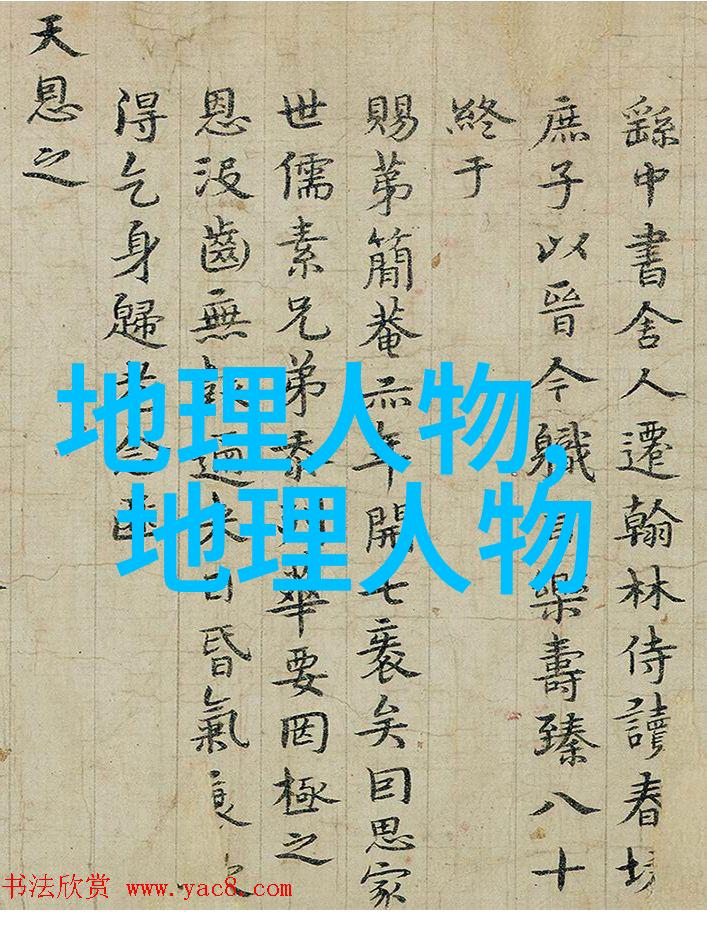 繇中書舍人遷翰林侍讀春坊
庶子以晉今軄樂壽臻八十
終于
賜苐簡菴年開七袠矣囙思家
世儒素兄弟忝華要罔極之
恩沒齒無邇来日昏氣
得乞身歸
天恩之
地理人物,
地理人物
书法欣赏 www.yac8.com